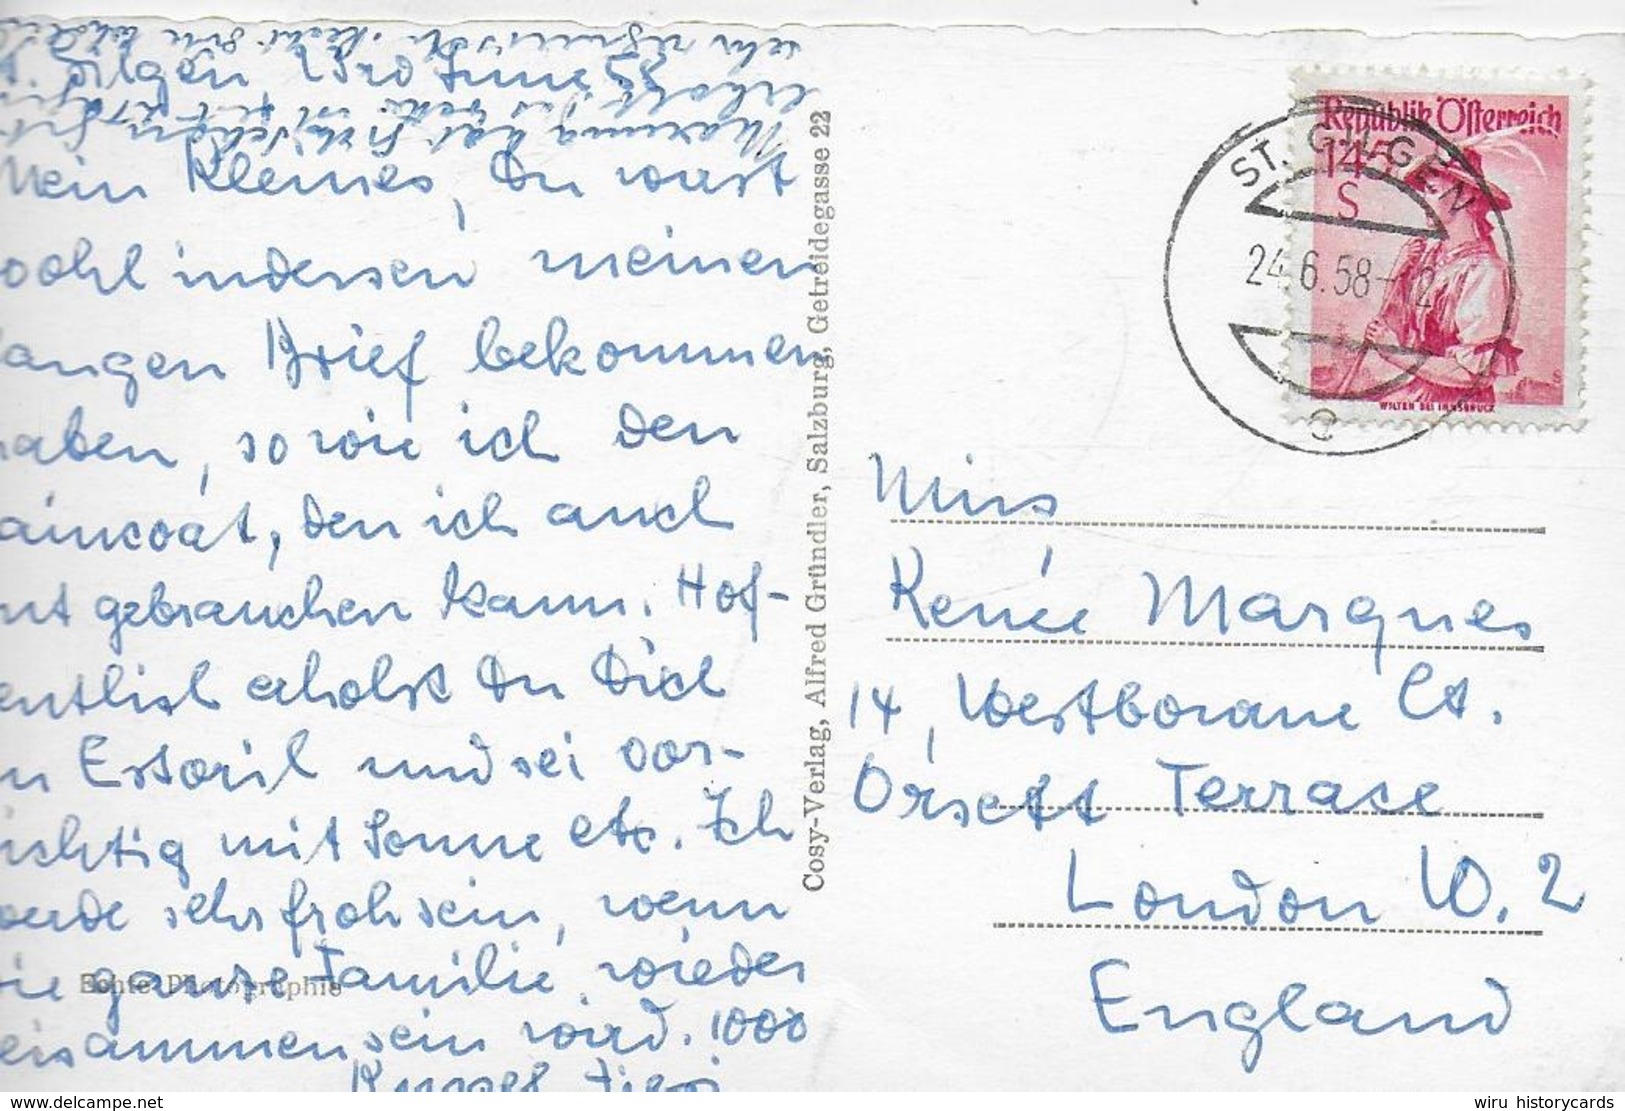 St. Gilgen
Mein Kleines, Du wirst
wohl indessen meinen
langen Brief bekommen
haben, so wie ich den
Raincoat, den ich auch
gut gebrauchen kann. Hof-
fentlich erholst Du Dich
in Estoril und sei vor-
sichtig mit Sonne etc. Ich
werde sehr froh sein, wenn
die ganze Familie wieder
beisammen sein wird. 1000
Echte Photographie
Cosy-Verlag, Alfred Gründler, Salzburg, Getreidegasse 22
Republik Österreich
1·45
S
WILTEN BEI INNSBRUCK
ST. GILGEN
24.6.58-12
e
Miss
Renée Marques
14, Westbourne Ct.
Orsett Terrace
London W. 2
England
delcampe.net
wiru historycards